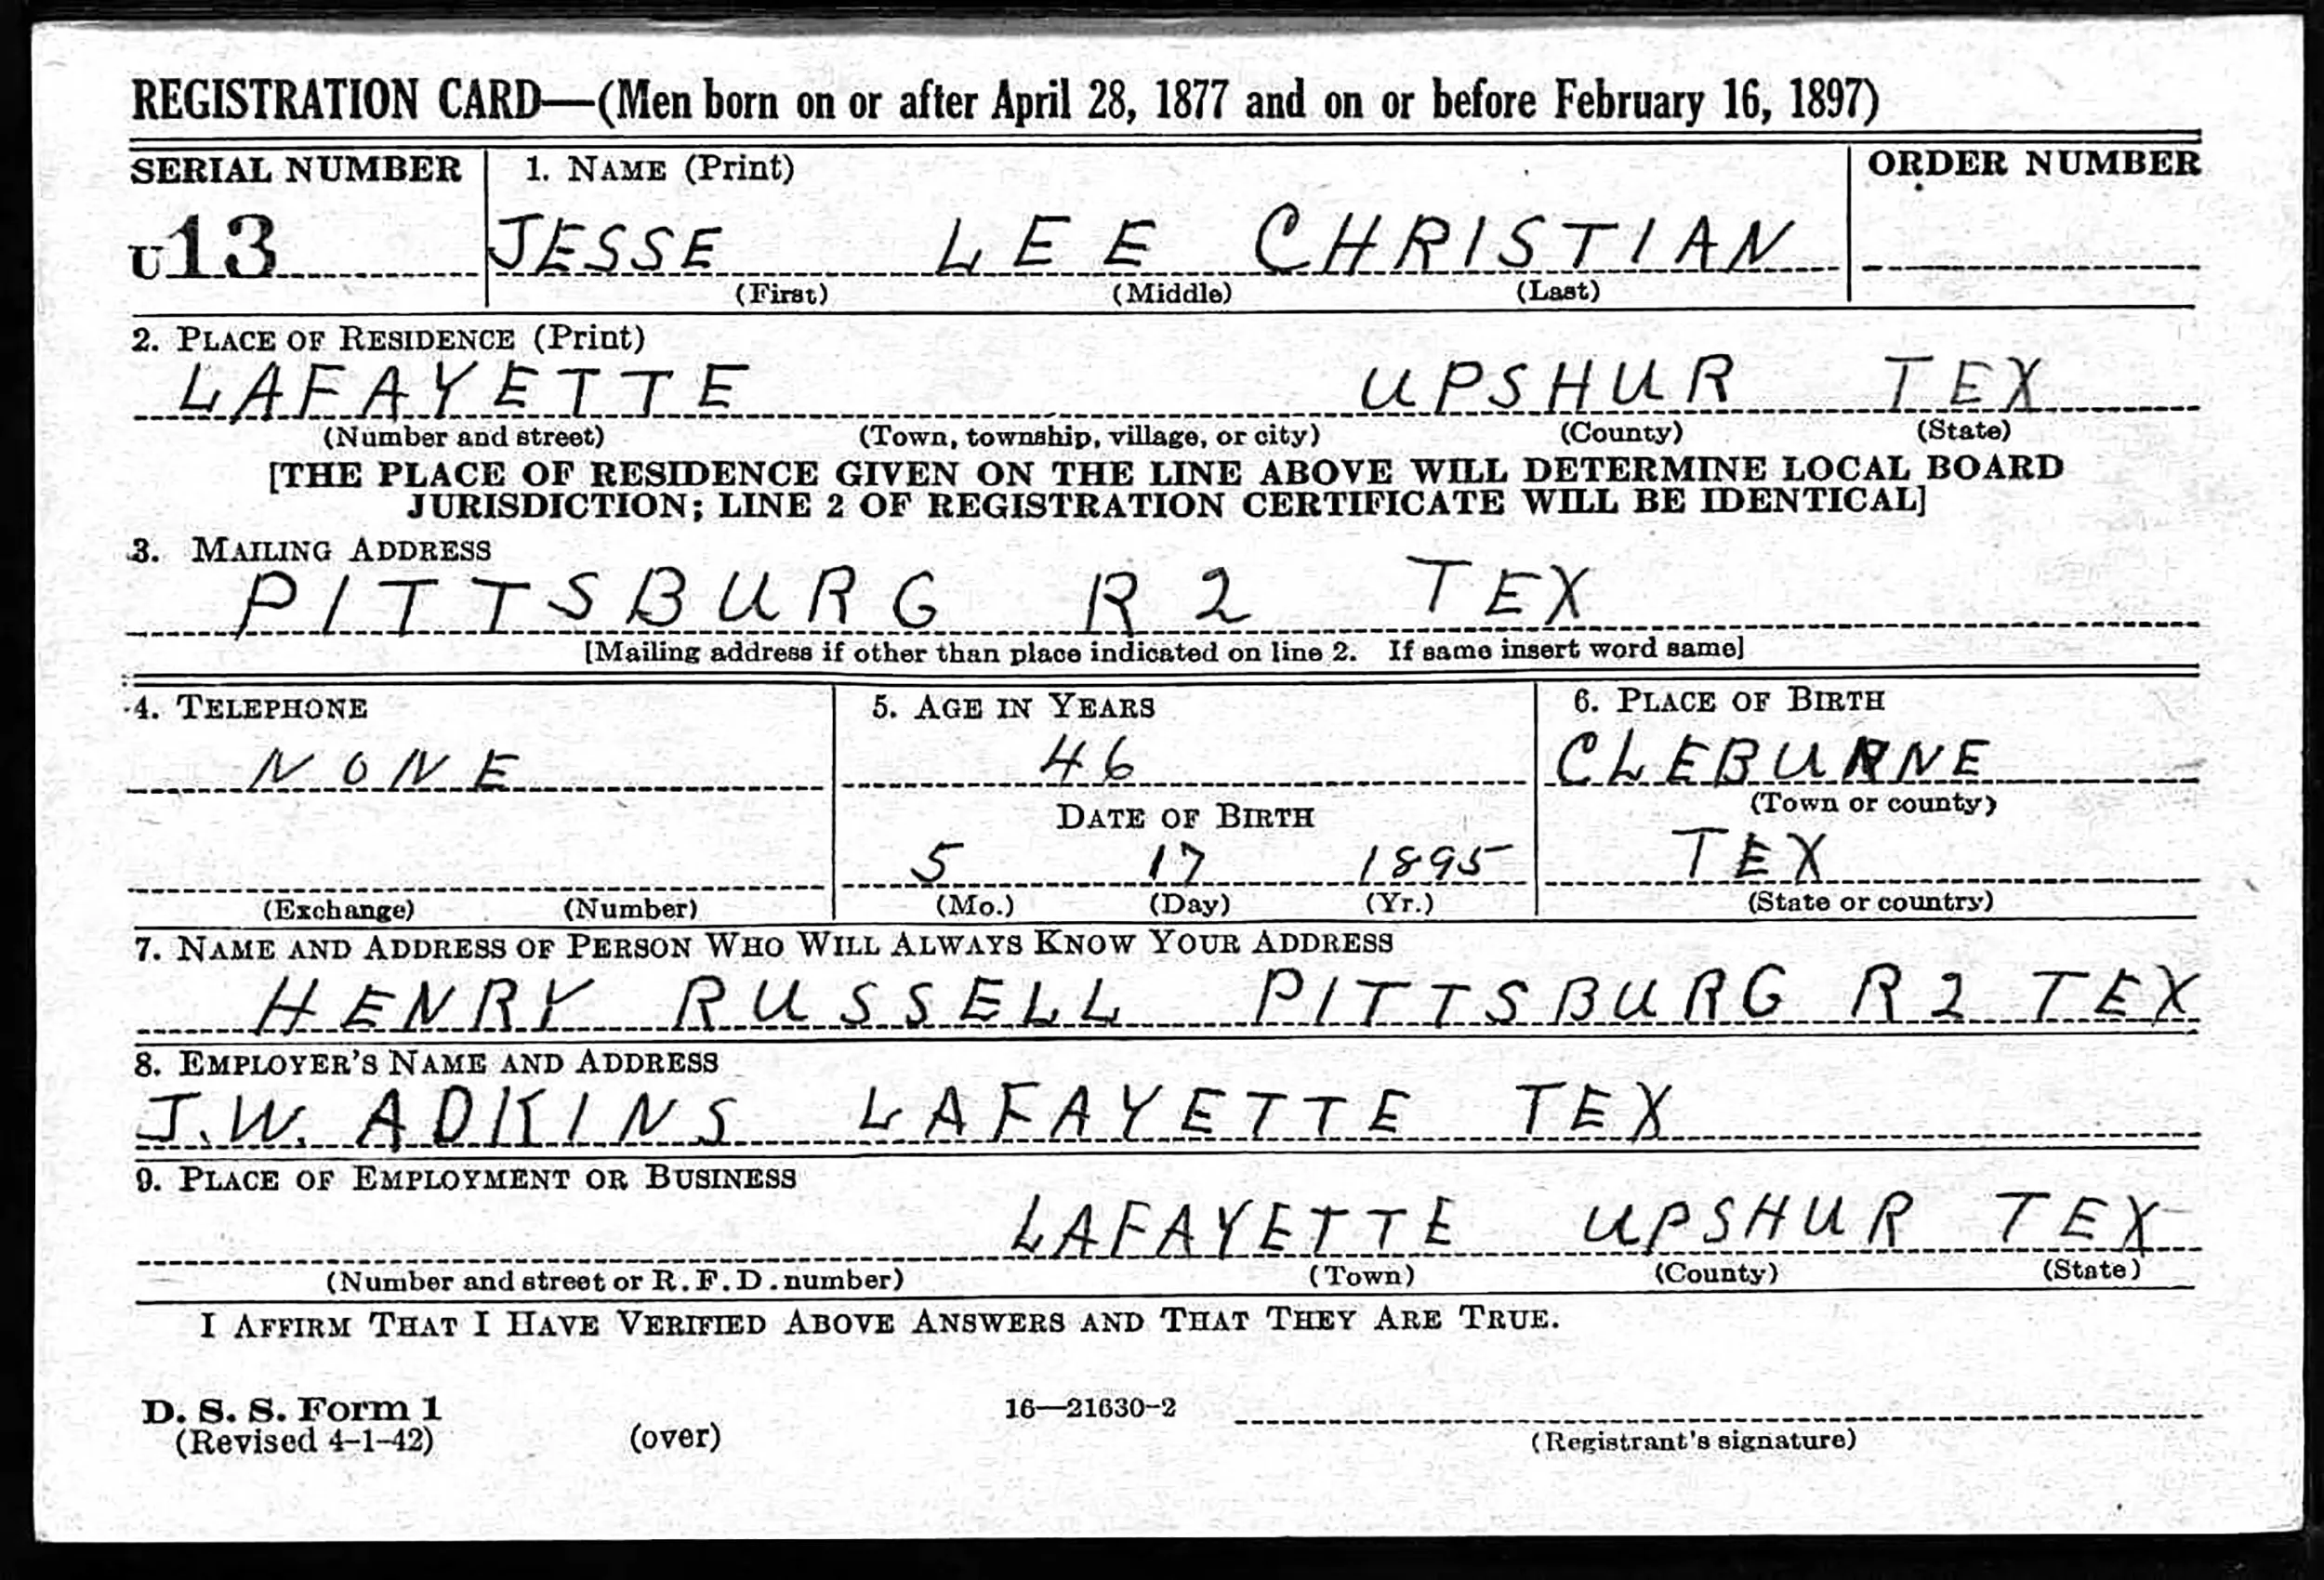 REGISTRATION CARD—(Men born on or after April 28, 1877 and on or before February 16, 1897)
SERIAL NUMBER 1. NAME (Print) ORDER NUMBER
U13 JESSE LEE CHRISTIAN
(First) (Middle) (Last)
2. PLACE OF RESIDENCE (Print)
LAFAYETTE UPSHUR TEX
(Number and street) (Town, township, village, or city) (County) (State)
[THE PLACE OF RESIDENCE GIVEN ON THE LINE ABOVE WILL DETERMINE LOCAL BOARD
JURISDICTION; LINE 2 OF REGISTRATION CERTIFICATE WILL BE IDENTICAL]
3. MAILING ADDRESS
PITTSBURG R 2 TEX
[Mailing address if other than place indicated on line 2. If same insert word same]
4. TELEPHONE 5. AGE IN YEARS 6. PLACE OF BIRTH
NONE 46 CLEBURNE
(Town or county)
DATE OF BIRTH
5 17 1895 TEX
(Exchange) (Number) (Mo.) (Day) (Yr.) (State or country)
7. NAME AND ADDRESS OF PERSON WHO WILL ALWAYS KNOW YOUR ADDRESS
HENRY RUSSELL PITTSBURG R 2 TEX
8. EMPLOYER'S NAME AND ADDRESS
J.W. ADKINS LAFAYETTE TEX
9. PLACE OF EMPLOYMENT OR BUSINESS
LAFAYETTE UPSHUR TEX
(Number and street or R.F.D. number) (Town) (County) (State)
I AFFIRM THAT I HAVE VERIFIED ABOVE ANSWERS AND THAT THEY ARE TRUE.
D. S. S. Form 1 16—21630-2
(Revised 4-1-42) (over) (Registrant's signature)